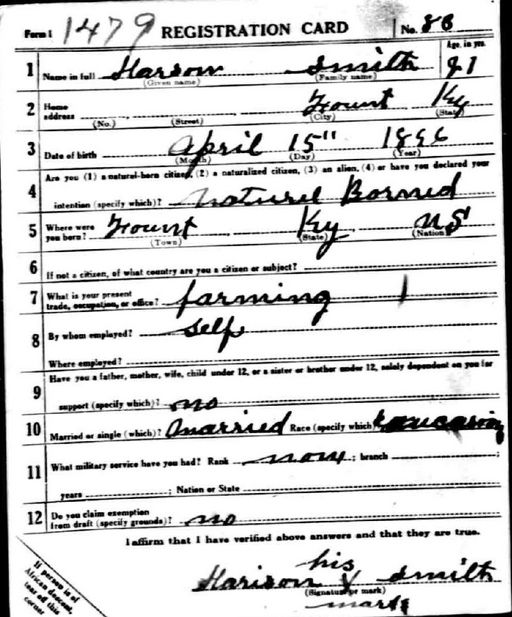 Form 1 1479 REGISTRATION CARD No. 88
Age, in yrs.
1 Name in full Harson Smith 21
(Given name) (Family name)
2 Home address Fount Ky
(No.) (Street) (City) (State)
3 Date of birth April 15" 1896
(Month) (Day) (Year)
Are you (1) a natural-born citizen, (2) a naturalized citizen, (3) an alien, (4) or have you declared your
4 intention (specify which)? naturel Borned
5 Where were you born? Fount Ky US
(Town) (State) (Nation)
6 If not a citizen, of what country are you a citizen or subject?
7 What is your present trade, occupation, or office? farming
8 By whom employed? self
Where employed?
9 Have you a father, mother, wife, child under 12, or a sister or brother under 12, solely dependent on you for
support (specify which)? no
10 Married or single (which)? Married Race (specify which)
11 What military service have you had? Rank none ; branch ;
years ; Nation or State
12 Do you claim exemption from draft (specify grounds)? no
I affirm that I have verified above answers and that they are true.
his
Harison X Smith
(Signature or mark)
mark
If person is of
African descent,
tear off this
corner